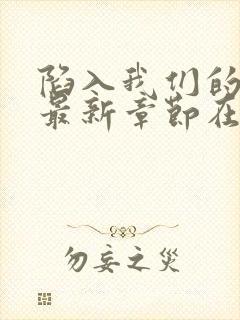 陷入我们的
最新章节在
勿妄之灾